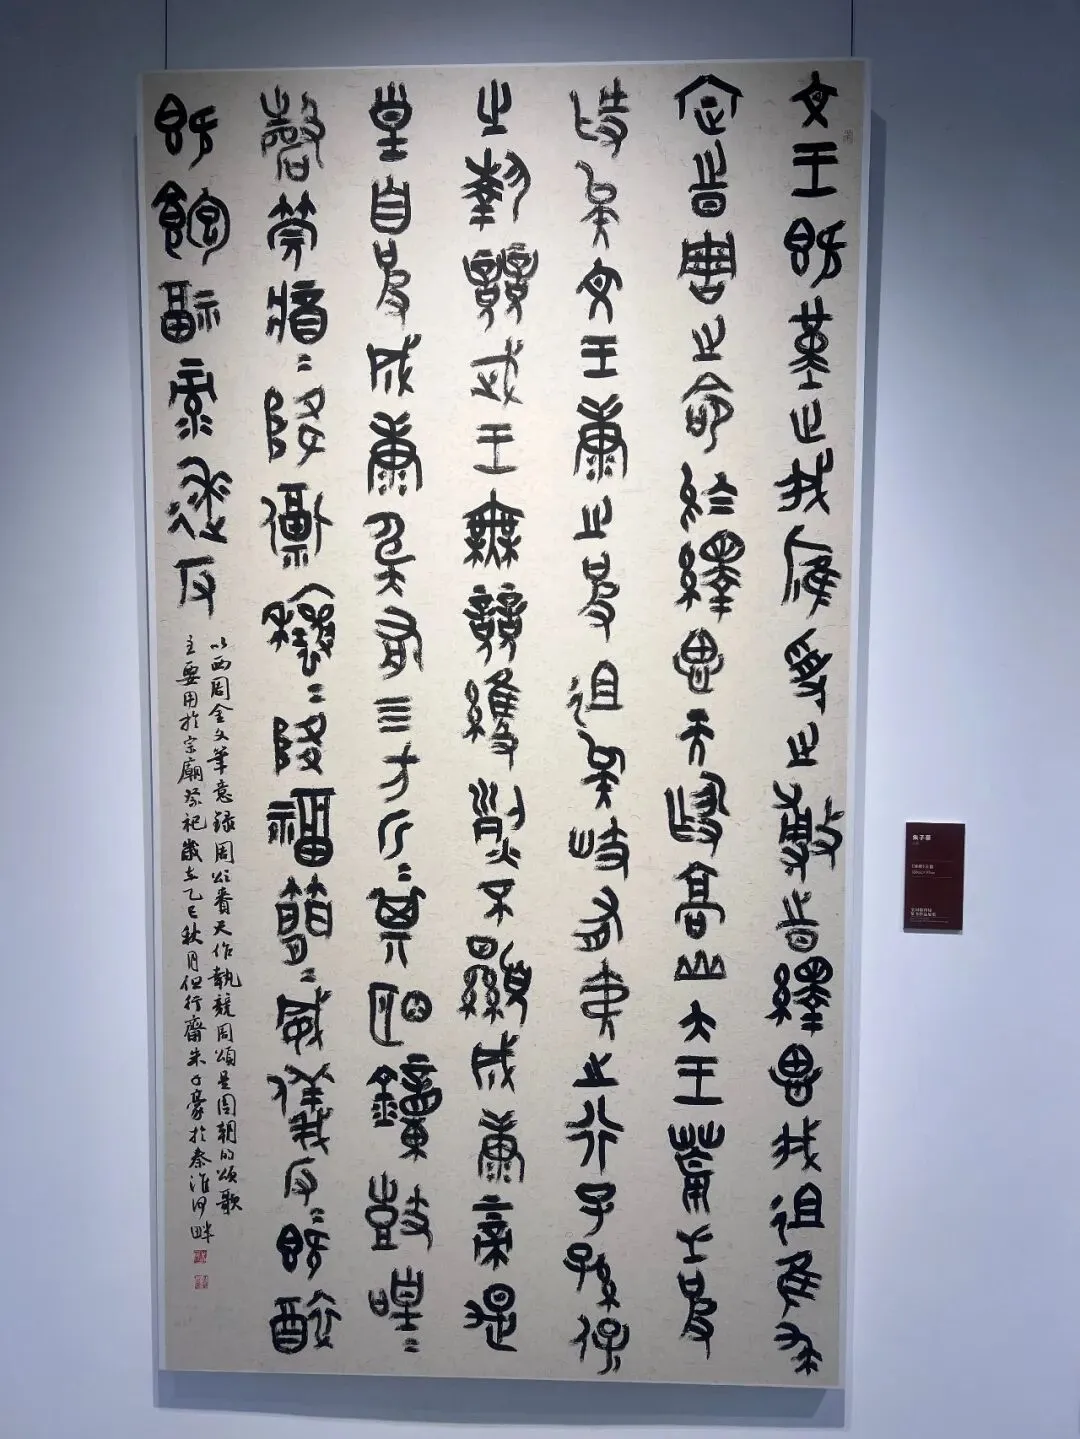 文王既堇止我雁受止敷旨繹思我徂隹求
定旨周之命於繹思天作高山大王荒之彼
作矣文王康之彼徂矣岐有夷之行子孫保
之執競武王無競維烈不顯成康帝是
皇自彼成康奄有三方斤=其明鐘鼓喤=
磬筦將=降福穰=降福簡=威儀反=既醉
既飽福祿來反
以西周金文筆意錄周頌賚天作執競周頌是周朝的頌歌
主要用於宗廟祭祀歲在乙巳秋月但行齋朱子豪於秦淮河畔
朱子豪